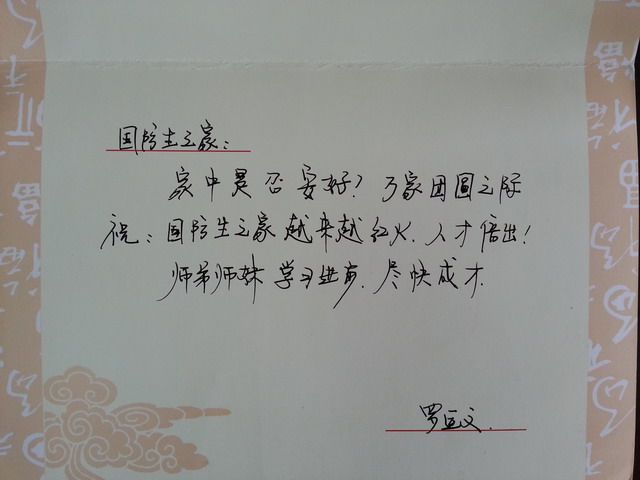 国防生之家：
家中是否安好？万家团圆之际
祝：国防生之家越来越红火，人才倍出！
师弟师妹学习进步，尽快成才.